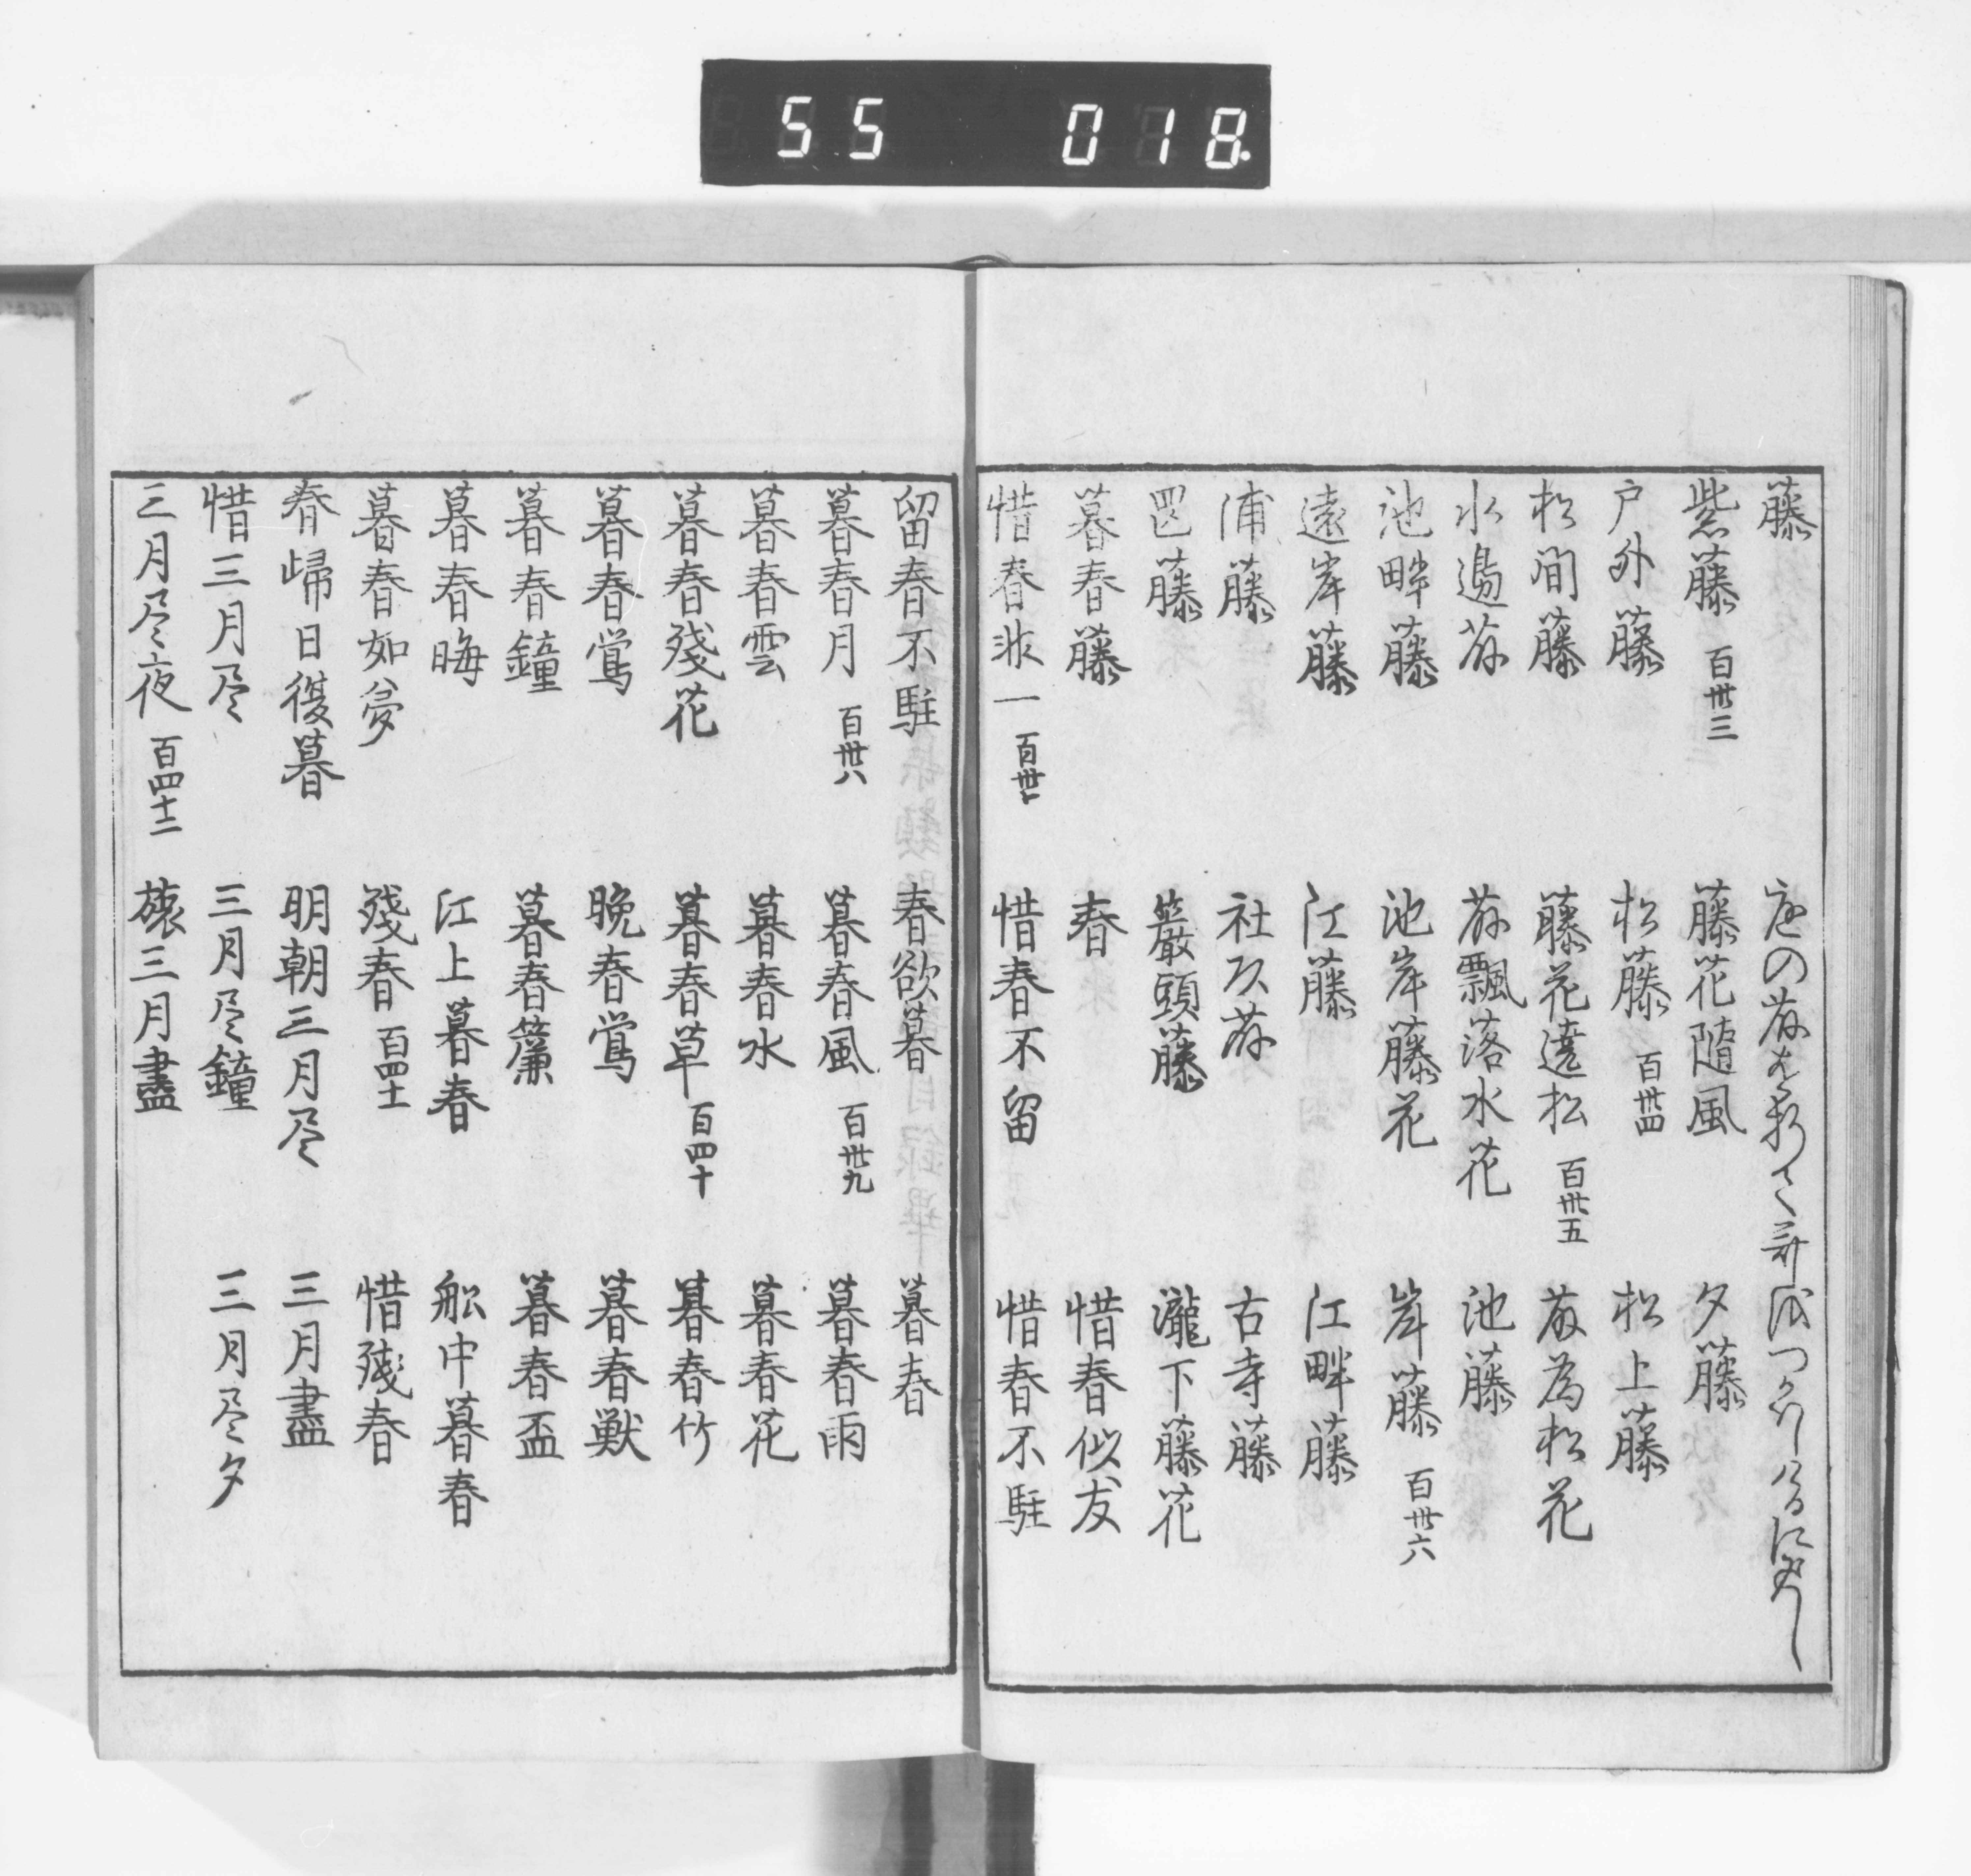 55 018
藤 庭の藤を
紫藤 百卅三 藤花随風 夕藤
戸外藤 松藤 百卅四 松上藤
松間藤 藤花遶松 百卅五 藤為松花
水邊藤 藤飄落水花 池藤
池畔藤 池岸藤花 岸藤 百卅六
遠岸藤 江藤 江畔藤
浦藤 社頭藤 古寺藤
罡藤 巖頭藤 瀧下藤花
暮春藤 春 惜春似友
惜春非一 百卅七 惜春不留 惜春不駐
留春不駐 春欲暮 暮春
暮春月 百卅八 暮春風 百卅九 暮春雨
暮春雲 暮春水 暮春花
暮春残花 暮春草 百四十 暮春竹
暮春鴬 晩春鴬 暮春獣
暮春鐘 暮春簾 暮春盃
暮春晦 江上暮春 舩中暮春
暮春如夢 残春 百四十一 惜残春
春歸日復暮 明朝三月尽 三月盡
惜三月尽 三月尽鐘 三月尽夕
三月尽夜 百四十二 三月盡